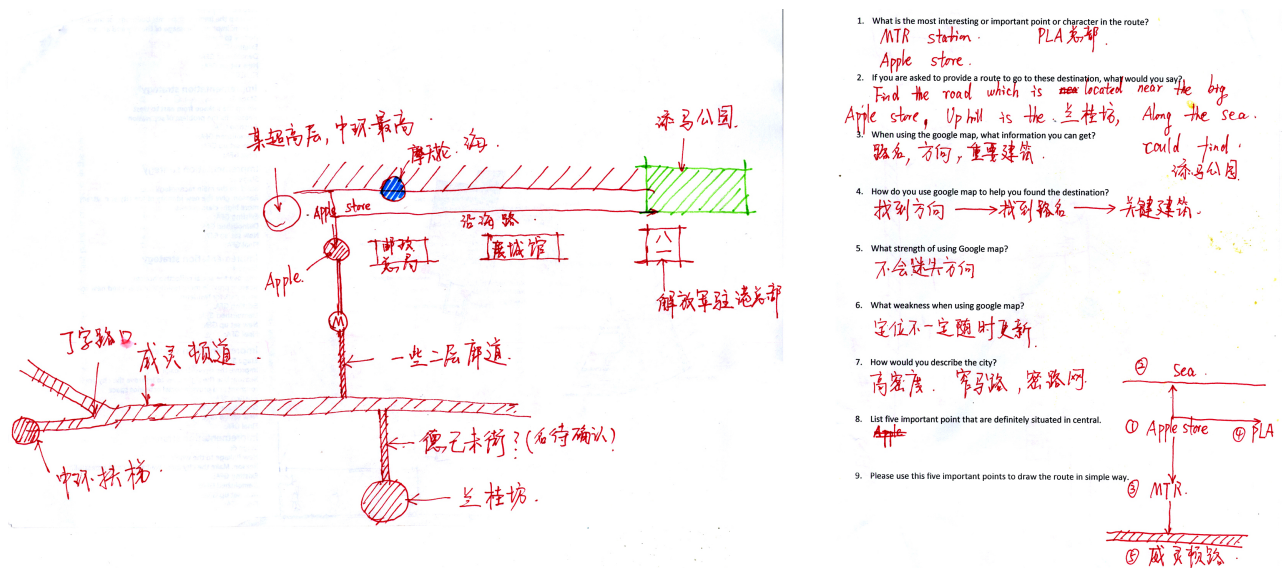 某超高层,中环最高.
摩天轮.
海.
添马公园.
Apple store
沿海路.
Apple.
邮政总局
展城馆
八一
解放军驻港总部
M
丁字路口
威灵顿道.
一些二层廊道.
德己未街?(名待确认)
中环扶梯.
兰桂坊.
1. What is the most interesting or important point or character in the route?
MTR station. PLA总部.
Apple store.
2. If you are asked to provide a route to go to these destination, what would you say?
Find the road which is located near the big
Apple store, Up hill is the 兰桂坊, Along the sea.
could find.
添马公园.
3. When using the google map, what information you can get?
路名,方向,重要建筑.
4. How do you use google map to help you found the destination?
找到方向 → 找到路名 → 关键建筑.
5. What strength of using Google map?
不会迷失方向
6. What weakness when using google map?
定位不一定随时更新.
7. How would you describe the city?
高密度. 窄马路,密路网.
8. List five important point that are definitely situated in central.
Apple
9. Please use this five important points to draw the route in simple way.
② Sea.
① Apple store
④ PLA
③ MTR.
⑤ 威灵顿路.